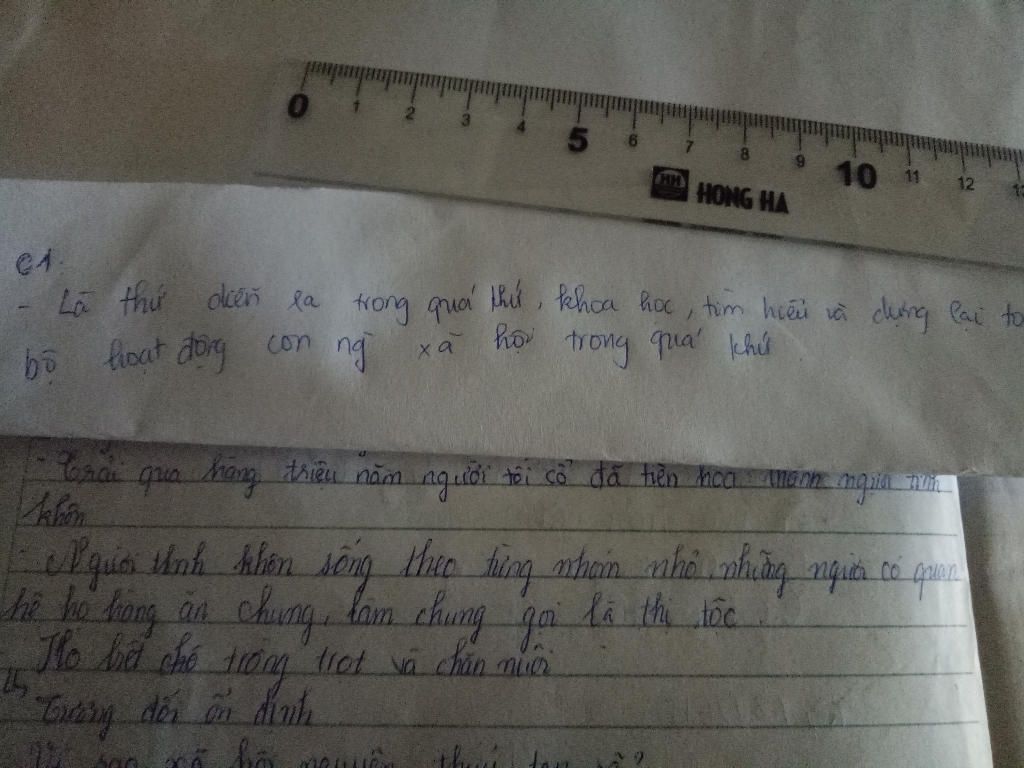 0 1 2 3 4 5 6 7 8 9 10 11 12 13
HH HONG HA
C1.
- Là thứ diễn ra trong quá khứ, khoa học, tìm hiểu và dựng lại to
bộ hoạt động con ng xã hội trong quá khứ
- Trải qua hàng triệu năm người tối cổ đã tiến hoa thành người tinh
khôn
- Người tinh khôn sống theo từng nhóm nhỏ, những người có quan
hệ họ hàng ăn chung, làm chung gọi là thị tộc.
- Họ biết chế trồng trọt và chăn nuôi
Tương đối ổn định
Vì sao xã hội nguyên thuỷ tan rã?